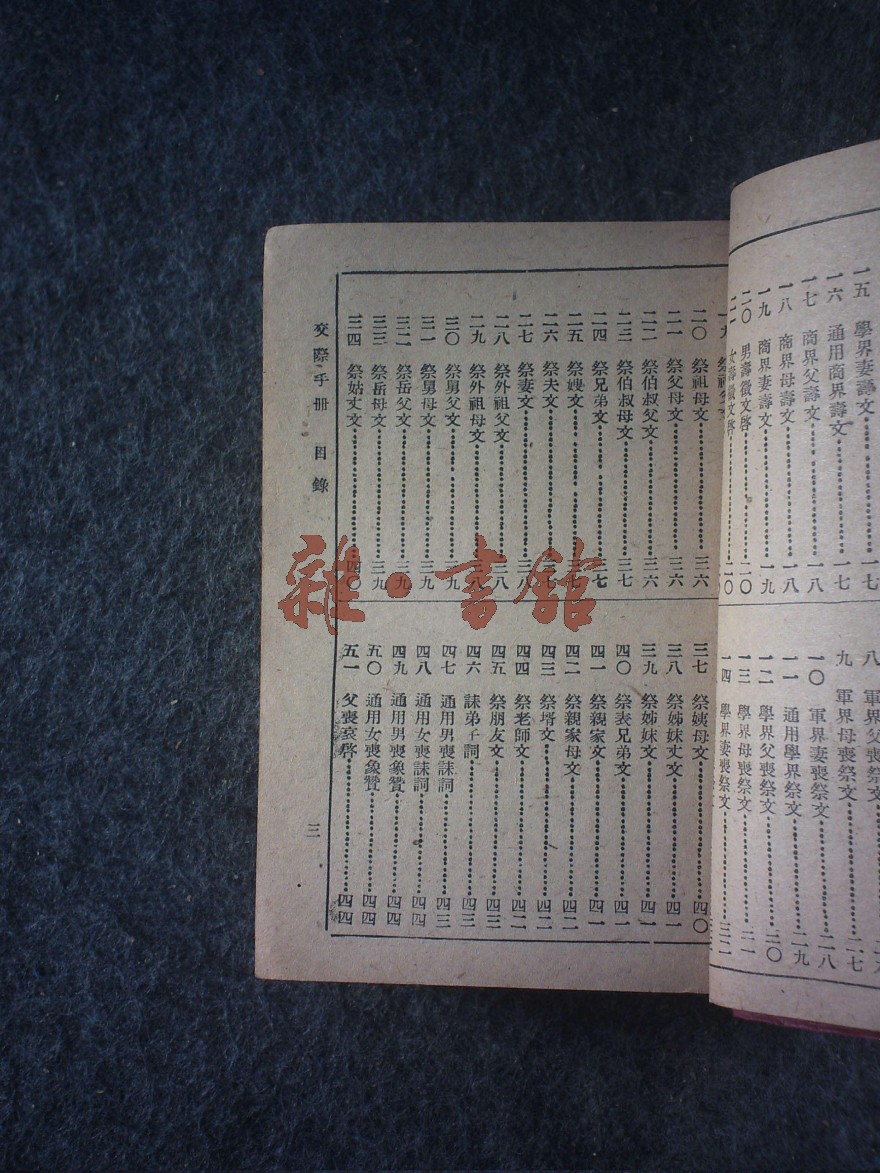 一五 學界妻壽文……一七
一六 通用商界壽文……一七
一七 商界父壽文……一八
一八 商界母壽文……一八
一九 商界妻壽文……一九
二〇 男壽徵文啓……二〇
二一 女壽徵文啓……二〇
八 軍界父喪祭文……
九 軍界母喪祭文……二七
一〇 軍界妻喪祭文……二八
一一 通用學界祭文……二九
一二 學界父喪祭文……三〇
一三 學界母喪祭文……三一
一四 學界妻喪祭文……三二
一九 祭祖父文
二〇 祭祖母文……三六
二一 祭父母文……三六
二二 祭伯叔父文……三六
二三 祭伯叔母文……三七
二四 祭兄弟文……三七
二五 祭嫂文……三七
二六 祭夫文……三七
二七 祭妻文……三八
二八 祭外祖父文……三八
二九 祭外祖母文……三八
三〇 祭舅父文……三九
三一 祭舅母文……三九
三二 祭岳父文……三九
三三 祭岳母文……三九
三四 祭姑丈文……四〇
三七 祭姨母文……四〇
三八 祭姊妹丈文……四一
三九 祭姊妹文……四一
四〇 祭表兄弟文……四一
四一 祭親家文……四一
四二 祭親家母文……四二
四三 祭壻文……四二
四四 祭老師文……四二
四五 祭朋友文……四三
四六 誄弟子詞……四三
四七 通用男喪誄詞……四三
四八 通用女喪誄詞……四四
四九 通用男喪象贊……四四
五〇 通用女喪象贊……四四
五一 父喪哀啓……四四
交際手册 目錄 三
雜·書館